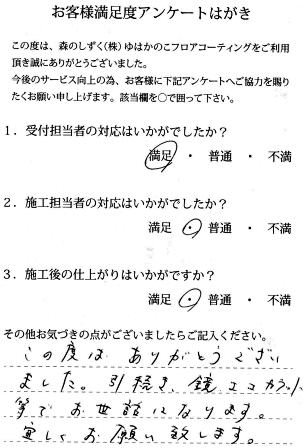 お客様満足度アンケートはがき
この度は、森のしずく(株)ゆはかのこフロアコーティングをご利用
頂き誠にありがとうございました。
今後のサービス向上の為、お客様に下記アンケートへご協力を賜り
たくお願い申し上げます。該当欄を○で囲って下さい。
1．受付担当者の対応はいかがでしたか？
満足 ・ 普通 ・ 不満
2．施工担当者の対応はいかがでしたか？
満足 ・ 普通 ・ 不満
3．施工後の仕上がりはいかがですか？
満足 ・ 普通 ・ 不満
その他お気づきの点がございましたらご記入ください。
この度は ありがとうござい
ました。引続き、鏡、エコカラット
等でお世話になります。
宜しくお願い致します。